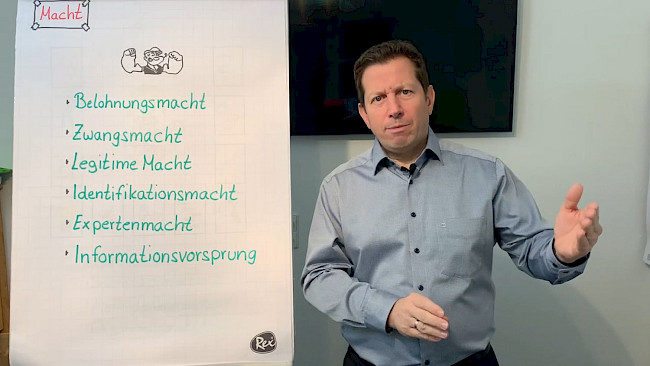 Macht
Belohnungsmacht
Zwangsmacht
Legitime Macht
Identifikationsmacht
Expertenmacht
Informationsvorsprung
Rex